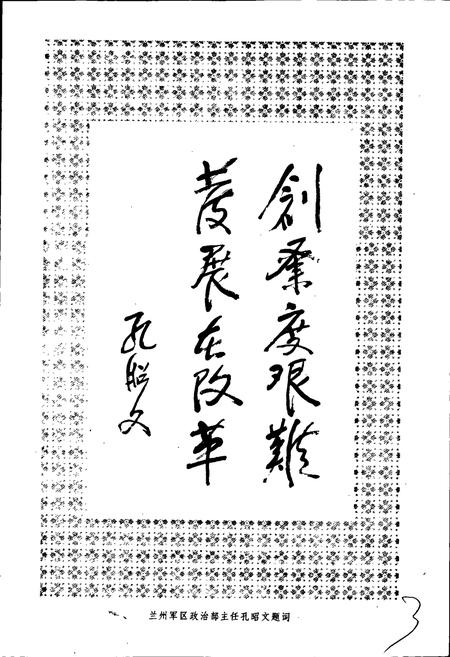 創業度艰難
發展在改革
孔昭文
兰州军区政治部主任孔昭文题词
3